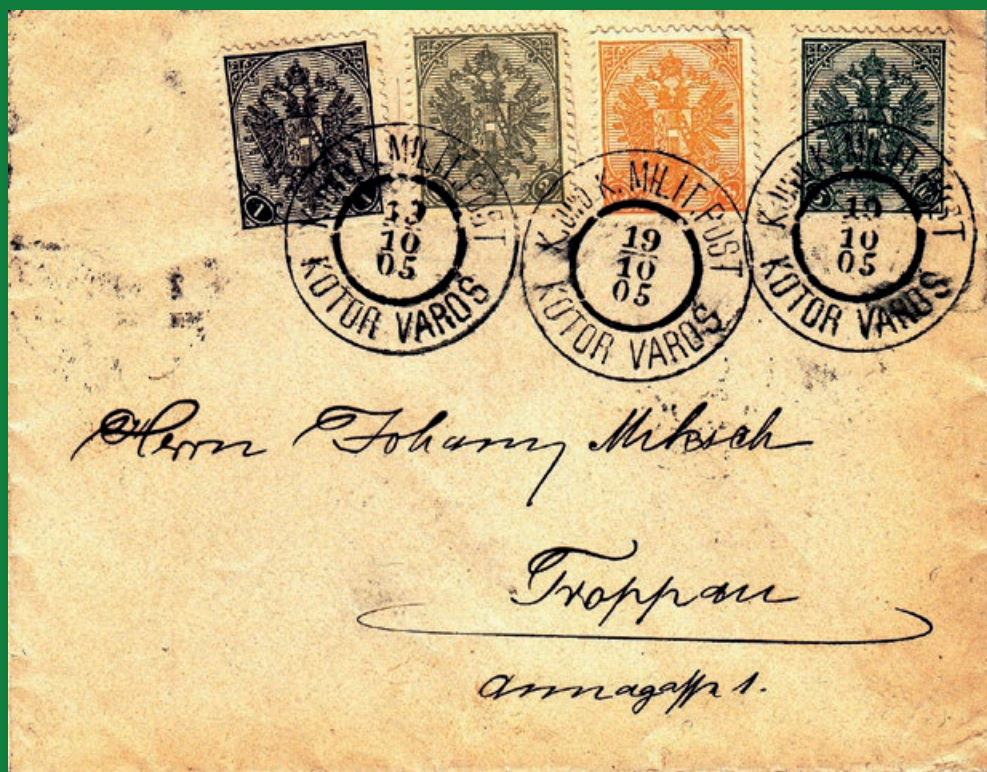 1 1
2
5
K. UND K. MILIT. POST
19
10
05
KOTOR VAROŠ
K. UND K. MILIT. POST
19
10
05
KOTOR VAROŠ
K. UND K. MILIT. POST
19
10
05
KOTOR VAROŠ
Herrn Johann Miksch
Troppau
Annagasse 1.